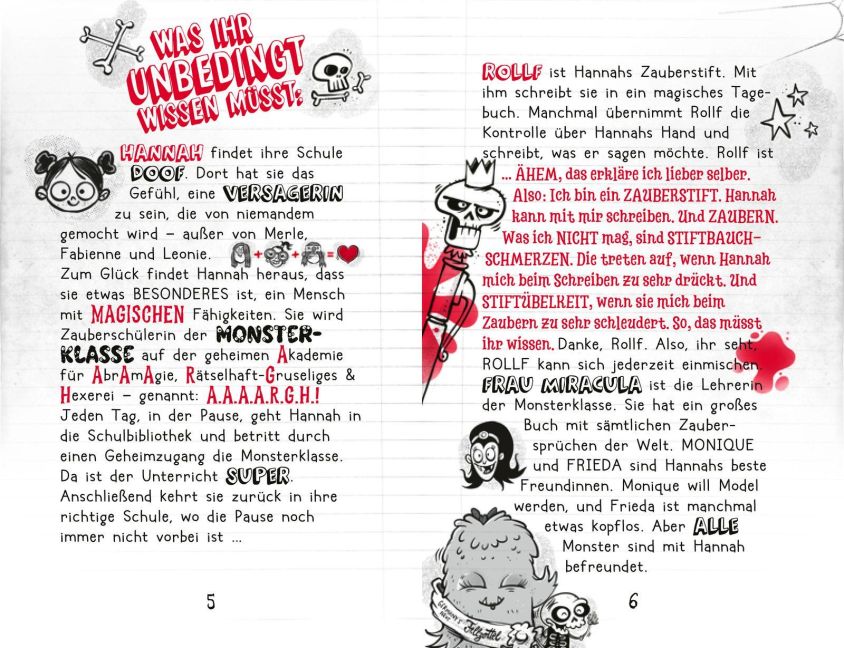 WAS IHR
UNBEDINGT
WISSEN MÜSST:
HANNAH findet ihre Schule
DOOF. Dort hat sie das
Gefühl, eine VERSAGERIN
zu sein, die von niemandem
gemocht wird – außer von Merle,
Fabienne und Leonie.
Zum Glück findet Hannah heraus, dass
sie etwas BESONDERES ist, ein Mensch
mit MAGISCHEN Fähigkeiten. Sie wird
Zauberschülerin der MONSTER-
KLASSE auf der geheimen Akademie
für AbrAmAgie, Rätselhaft-Gruseliges &
Hexerei – genannt: A.A.A.A.R.G.H.!
Jeden Tag, in der Pause, geht Hannah in
die Schulbibliothek und betritt durch
einen Geheimzugang die Monsterklasse.
Da ist der Unterricht SUPER.
Anschließend kehrt sie zurück in ihre
richtige Schule, wo die Pause noch
immer nicht vorbei ist ...
5
ROLLF ist Hannahs Zauberstift. Mit
ihm schreibt sie in ein magisches Tage-
buch. Manchmal übernimmt Rollf die
Kontrolle über Hannahs Hand und
schreibt, was er sagen möchte. Rollf ist
... ÄHEM, das erkläre ich lieber selber.
Also: Ich bin ein ZAUBERSTIFT. Hannah
kann mit mir schreiben. Und ZAUBERN.
Was ich NICHT mag, sind STIFTBAUCH-
SCHMERZEN. Die treten auf, wenn Hannah
mich beim Schreiben zu sehr drückt. Und
STIFTÜBELKEIT, wenn sie mich beim
Zaubern zu sehr schleudert. So, das müsst
ihr wissen. Danke, Rollf. Also, ihr seht,
ROLLF kann sich jederzeit einmischen.
FRAU MIRACULA ist die Lehrerin
der Monsterklasse. Sie hat ein großes
Buch mit sämtlichen Zauber-
sprüchen der Welt. MONIQUE
und FRIEDA sind Hannahs beste
Freundinnen. Monique will Model
werden, und Frieda ist manchmal
etwas kopflos. Aber ALLE
Monster sind mit Hannah
befreundet.
GERMANY'S
NEXT
Fellzottel
6